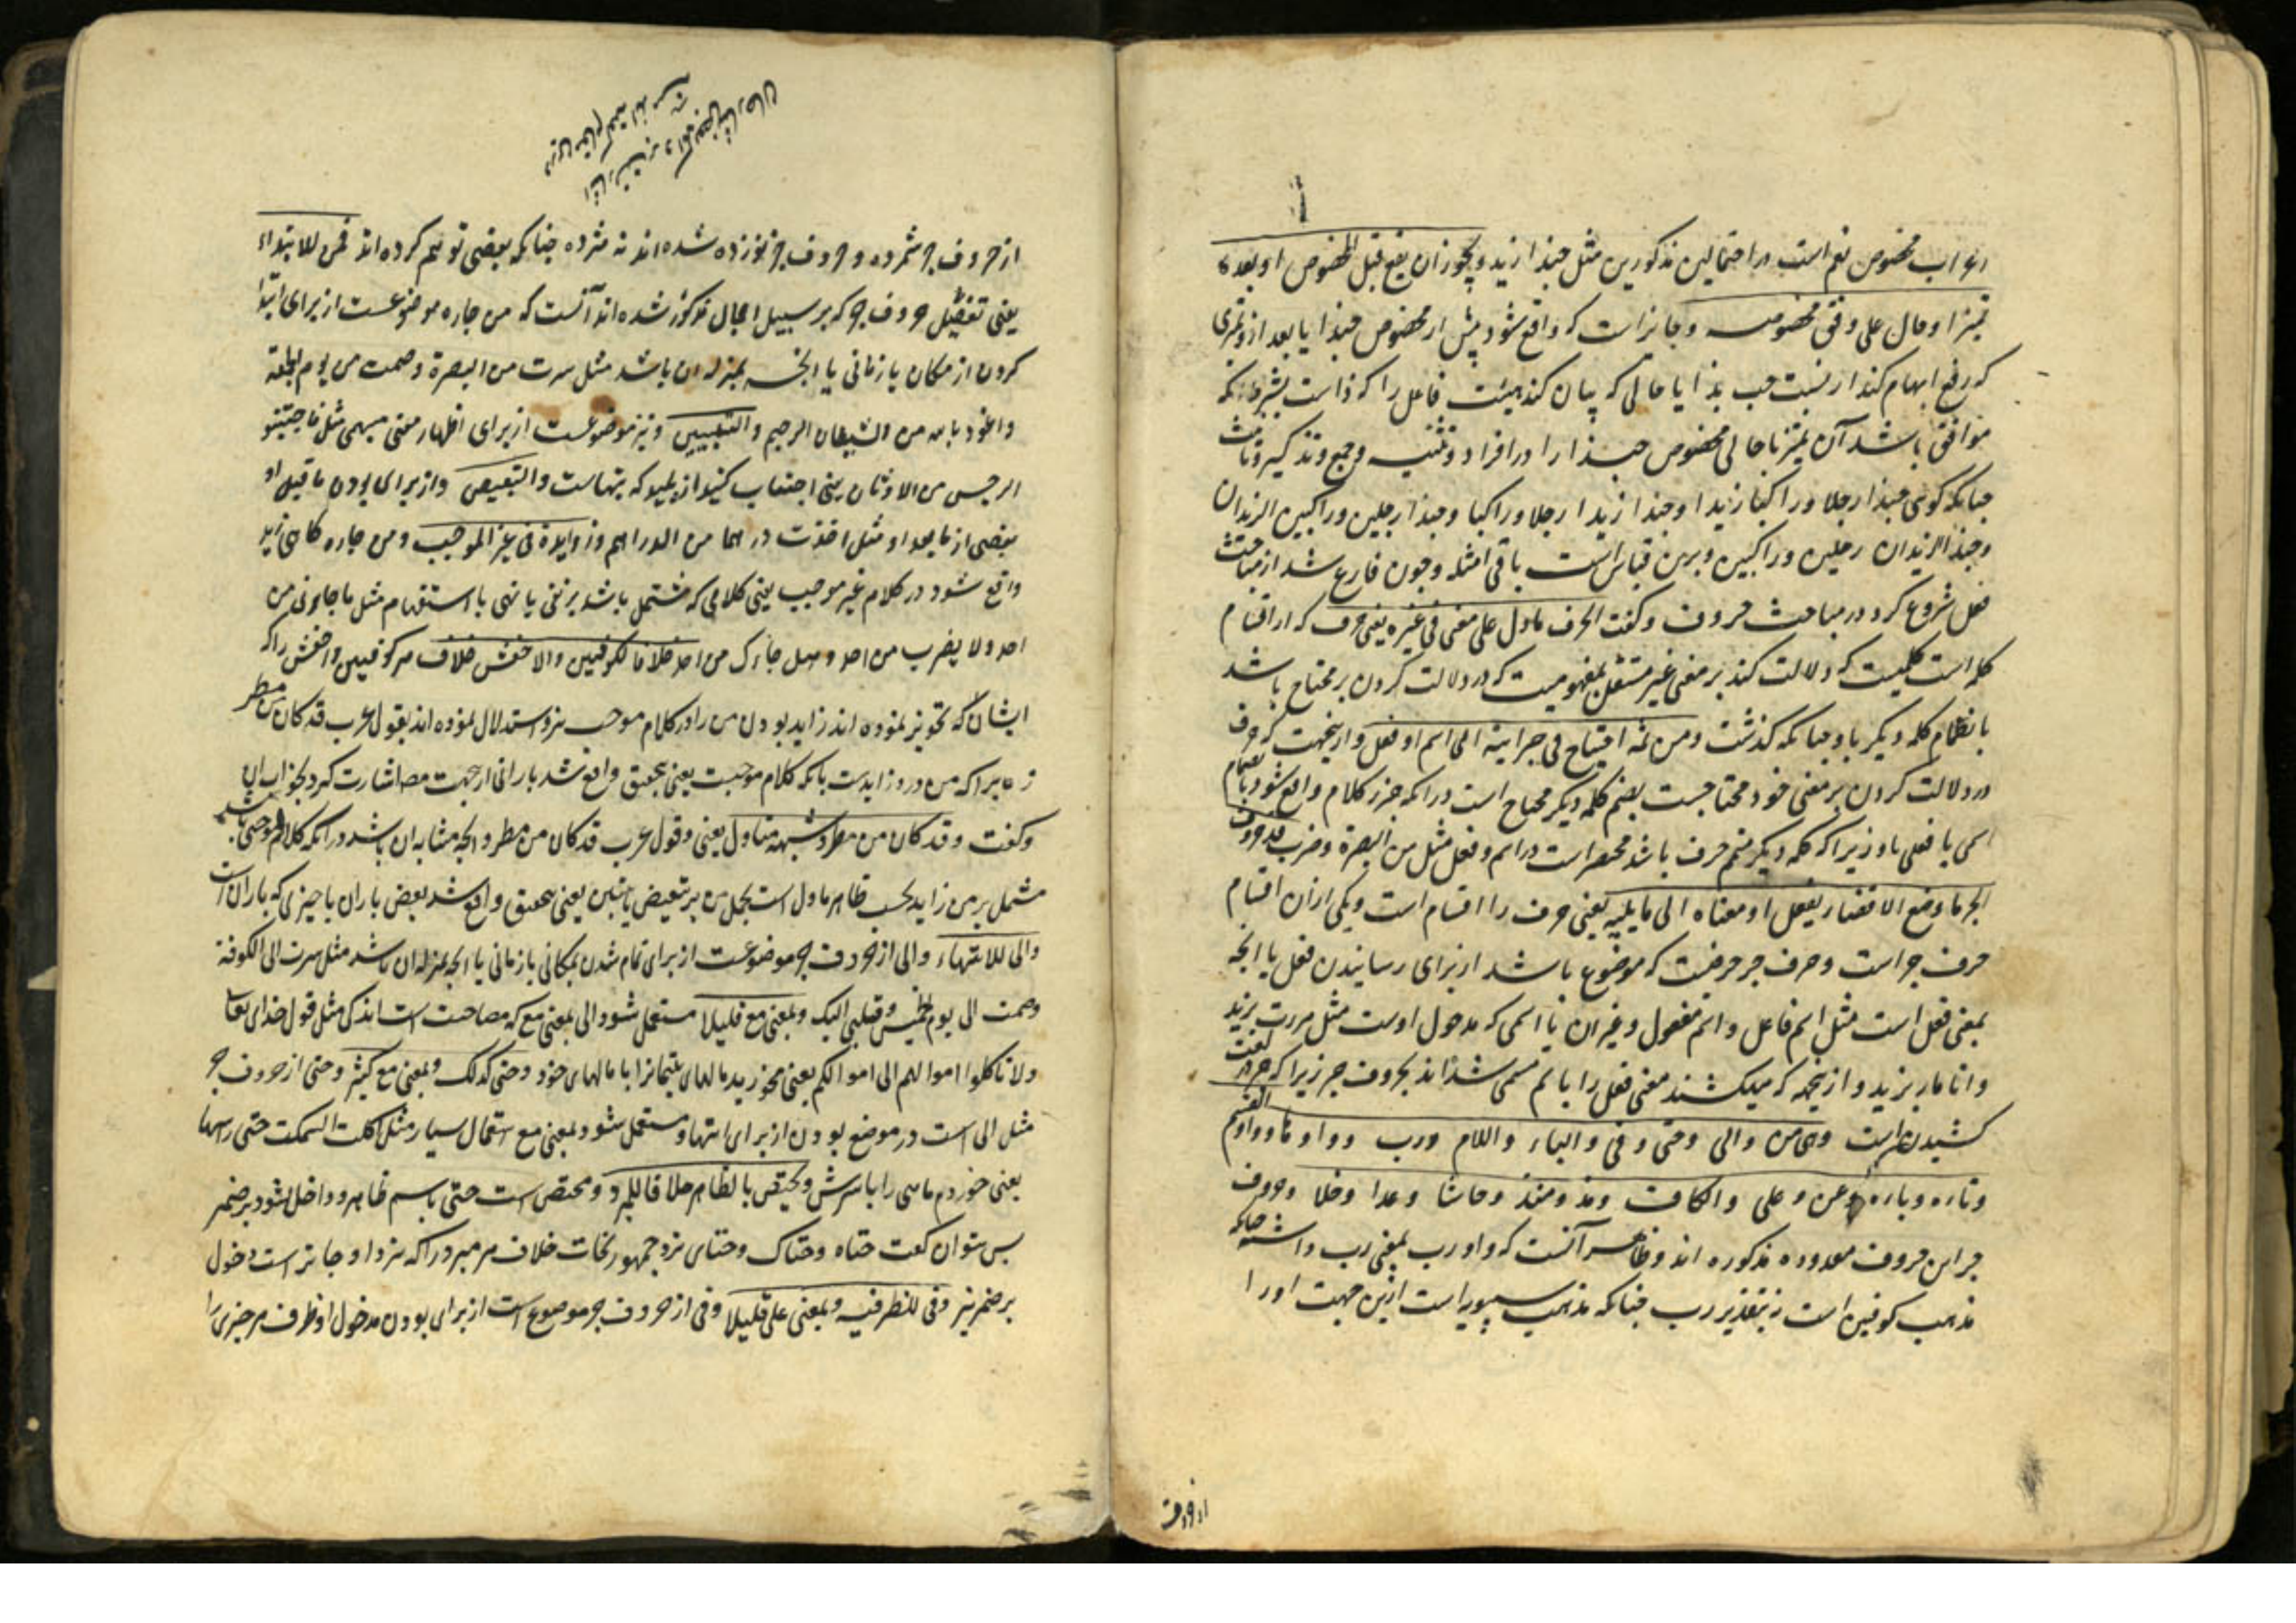 اعراب مخصوص نعم است در احتمالین مذکورین مثل حبذا زید ویجوز ان یقع قبل المخصوص او بعده
تمیزا وحال علی وفق مخصوصه وجایز است که واقع شود پیش از مخصوص حبذا یا بعد ازو تمیزی
که رفع ابهام کند از نسبت حب بذا یا حالی که بیان کند هیئت فاعل را که ذا است بشرط آنکه
موافق باشد آن تمیز یا حالی مخصوص حبذا را در افراد وتثنیه وجمع وتذکیر وتانیث
چنانکه گوئی حبذا رجلا وراکبا زیدا وحبذا زیدا رجلا وراکبا وحبذا رجلین وراکبین الزیدان
وحبذا الزیدان رجلین وراکبین وبرین قیاس است باقی امثله وچون فارغ شد از مباحث
فعل شروع کرد در مباحث حروف وگفت الحرف مادل علی معنی فی غیره یعنی حرف که از اقسام
کلمه است کلمیست که دلالت کند بر معنی غیر مستقل بمفهومیت که در دلالت کردن بر محتاج باشد
بانظمام کلمه دیگر باو چنانکه گذشت ومن ثمه احتیاج فی جزائیته الی اسم او فعل وازینجهت که حرف
در دلالت کردن بر معنی خود محتاجست بضم کلمه دیگر محتاج است در آنکه جزر کلام واقع شود بانضمام
اسمی یا فعلی باو زیرا که کلمه دیگر منضم حرف باشد منحصر است در اسم وفعل مثل من البصرة وضرب قد حروف
الجر ما وضع الافضاء بفعل او معناه الی ما یلیه یعنی حرف را اقسام است ویکی ازان اقسام
حرف جر است وحرف جر حرفیست که موضوع باشد از برای رسانیدن فعل یا انچه
بمعنی فعل است مثل اسم فاعل واسم مفعول وغیر آن یا اسمی که مدخول اوست مثل مررت بزید
وانا مار بزید وازینجهه که میکشند معنی فعل را باسم مسمی شده اند بحروف جر زیرا که جر در لغت
کشیدن است وهی من والی وحتی وفی والباء واللام ورب وواو ها وواو القسم
وتاءه وباءه وعن وعلی والکاف ومذ ومنذ وحاشا وعدا وخلا وحروف
جر این حروف معدوده مذکوره اند وظاهر آنست که واو رب بمعنی رب داشته چنانکه
مذهب کوفیین است نه بتقدیر رب چنانکه مذهب سیبویه است ازین جهت او را
از حروف
از حروف جر شمرده وحروف جر نوزده شده اند نه هژده چنانکه بعضی توهم کرده اند فمن للابتداء
یعنی تفصیل حروف جر که بر سبیل اجمال مذکور شده اند آنست که من جاره موضوعست از برای ابتدا
کردن از مکان یا زمانی یا انچه بمنزله آن باشد مثل سرت من البصرة وصمت من یوم الجمعة
واعوذ بالله من الشیطان الرجیم والتبیین ونیز موضوعست از برای اظهار معنی مبهمی مثل فاجتنبو
الرجس من الاوثان یعنی اجتناب کنید از پلیدی که بتهاست والتبعیض واز برای بودن ماقبل او
بعضی از مابعد او مثل اخذت درهما من الدراهم وزایدة فی غیر الموجب ومن جاره گاهی زاید
واقع شود در کلام غیر موجب یعنی کلامی که مشتمل باشد بر نفی یا نهی یا استفهام مثل ما جاءنی من
احد ولا یضرب من احد وهل جاءک من احد خلافا للکوفیین والاخفش خلاف مر کوفیین واخفش را که
ایشان که تجویز نموده اند زاید بودن من را در کلام موجب نیز واستدلال نموده اند بقول عرب قد کان من مطر
زیرا که من درو زایدست با آنکه کلام موجبست یعنی بتحقیق واقع شد بارانی ازجهت مص اشارت کرد بجواب ان
وگفت وقد کان من مطر وشبهه متاول یعنی وقول عرب قد کان من مطر وانچه مشابه ان باشد در آنکه کلام موجبی باشد
مشتمل بر من زاید بحسب ظاهر ماول است بحمل من بر تبعیض یا تبیین یعنی بتحقیق واقع شد بعض باران یا چیزی که باران است
والی للانتهاء والی از حروف جر موضوعست از برای تمام شدن بمکانی یا زمانی یا انچه بمنزله ان باشد مثل سرت الی الکوفة
وصمت الی یوم الخمیس وقلبی الیک وبمعنی مع قلیلا مستعمل شود الی بمعنی مع که مصاحبت است اندکی مثل قول خدای تعا
ولا تاکلوا اموالهم الی اموالکم یعنی مخورید مالهای یتیمانرا با مالهای خود وحتی کذلک وبمعنی مع کثیرا وحتی از حروف جر
مثل الی است در موضع بودن از برای انتها ومستعمل شود بمعنی مع استعمال بسیار مثل اکلت السمکت حتی راسها
یعنی خوردم ماهی را با سرش ویختص بالظاهر خلافا للمبرد ومختص است حتی باسم ظاهر وداخل نشود بر ضمیر
پس نتوان گفت حتاه وحتاک وحتای نزد جمهور نحات خلاف مر مبرد را که نزد او جایز است دخول
بر ضمیر نیز وفی للظرفیه وبمعنی علی قلیلا وفی از حروف جر موضوع است از برای بودن مدخول او ظرف مر چیزی را